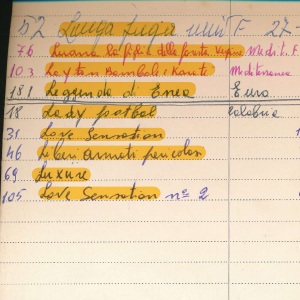 52 Lunga Fuga unit F 27-
76 Luana la figlia delle foresta vergine Medit. F.
103 Layton Bambole e Karate Mediterranea
181 Leggenda di Enea Euro
18 Lady football Calabria
31 Love Sensation
46 Liberi armati pericolosi
69 Luxure
105 Love Sensation n° 2